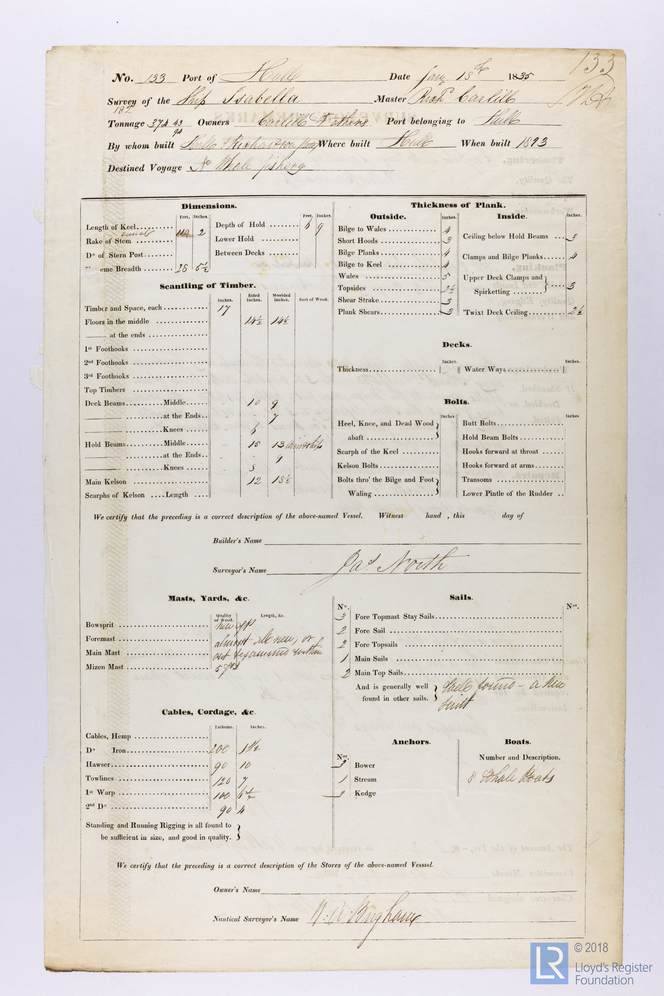 133
No. 133 Port of Hull Date Jany 15th 1835
Survey of the Ship Isabella Master Richd Carlill
182
Tonnage 374 43/94 Owners Carlill & others Port belonging to Hull
By whom built Where built Hull When built 1813
Destined Voyage No Whale fishery
Dimensions.
Feet. Inches.
Length of Keel 2
Rake of Stem
Do of Stern Post
eme Breadth 28 5½
Depth of Hold 6 9
Lower Hold
Between Decks
Scantling of Timber.
Inches. Sided Inches. Moulded Inches. Sort of Wood.
Timber and Space, each 17
Floors in the middle 14½ 14½
at the ends
1st Foothooks
2nd Foothooks
3rd Foothooks
Top Timbers
Deck Beams Middle 10 9
at the Ends 7
Knees 6
Hold Beams Middle 15 13 amidships
at the Ends - 9
Knees 8
Main Kelson 12 13½
Scarphs of Kelson Length
Thickness of Plank.
Outside. Inches.
Bilge to Wales 4
Short Hoods 3
Bilge Planks 4
Bilge to Keel 4
Wales 5
Topsides 2½
Shear Strake 3
Plank Shears 3
Inside. Inches.
Ceiling below Hold Beams 3
Clamps and Bilge Planks 4
Upper Deck Clamps and
Spirketting 3
'Twixt Deck Ceiling 2½
Decks.
Thickness Inches. Water Ways Inches.
Bolts.
Inches
Heel, Knee, and Dead Wood
abaft
Scarph of the Keel
Kelson Bolts
Bolts thro' the Bilge and Foot
Waling
Inches
Butt Bolts
Hold Beam Bolts
Hooks forward at throat
Hooks forward at arms
Transoms
Lower Pintle of the Rudder
We certify that the preceding is a correct description of the above-named Vessel. Witness hand , this day of
Builder's Name
Surveyor's Name Jas North
Masts, Yards, &c.
Quality of Wood. Length, &c.
Bowsprit
Foremast almost all new, or
Main Mast not examined within
Mizen Mast 5 yrs
Sails.
No. No.
3 Fore Topmast Stay Sails
2 Fore Sail
2 Fore Topsails
1 Main Sails
2 Main Top Sails
And is generally well
found in other sails. Well found - a new
suit
Cables, Cordage, &c.
Fathoms. Inches.
Cables, Hemp
Do Iron 200
Hawser 90 10
Towlines 120 7
1st Warp 100 6½
2nd Do 90 4
Standing and Running Rigging is all found to
be sufficient in size, and good in quality.
Anchors.
No.
3 Bower
1 Stream
3 Kedge
Boats.
Number and Description.
8 Whale Boats
We certify that the preceding is a correct description of the Stores of the above-named Vesssel.
Owner's Name
Nautical Surveyor's Name Bingham
LR
© 2018
Lloyd's Register
Foundation